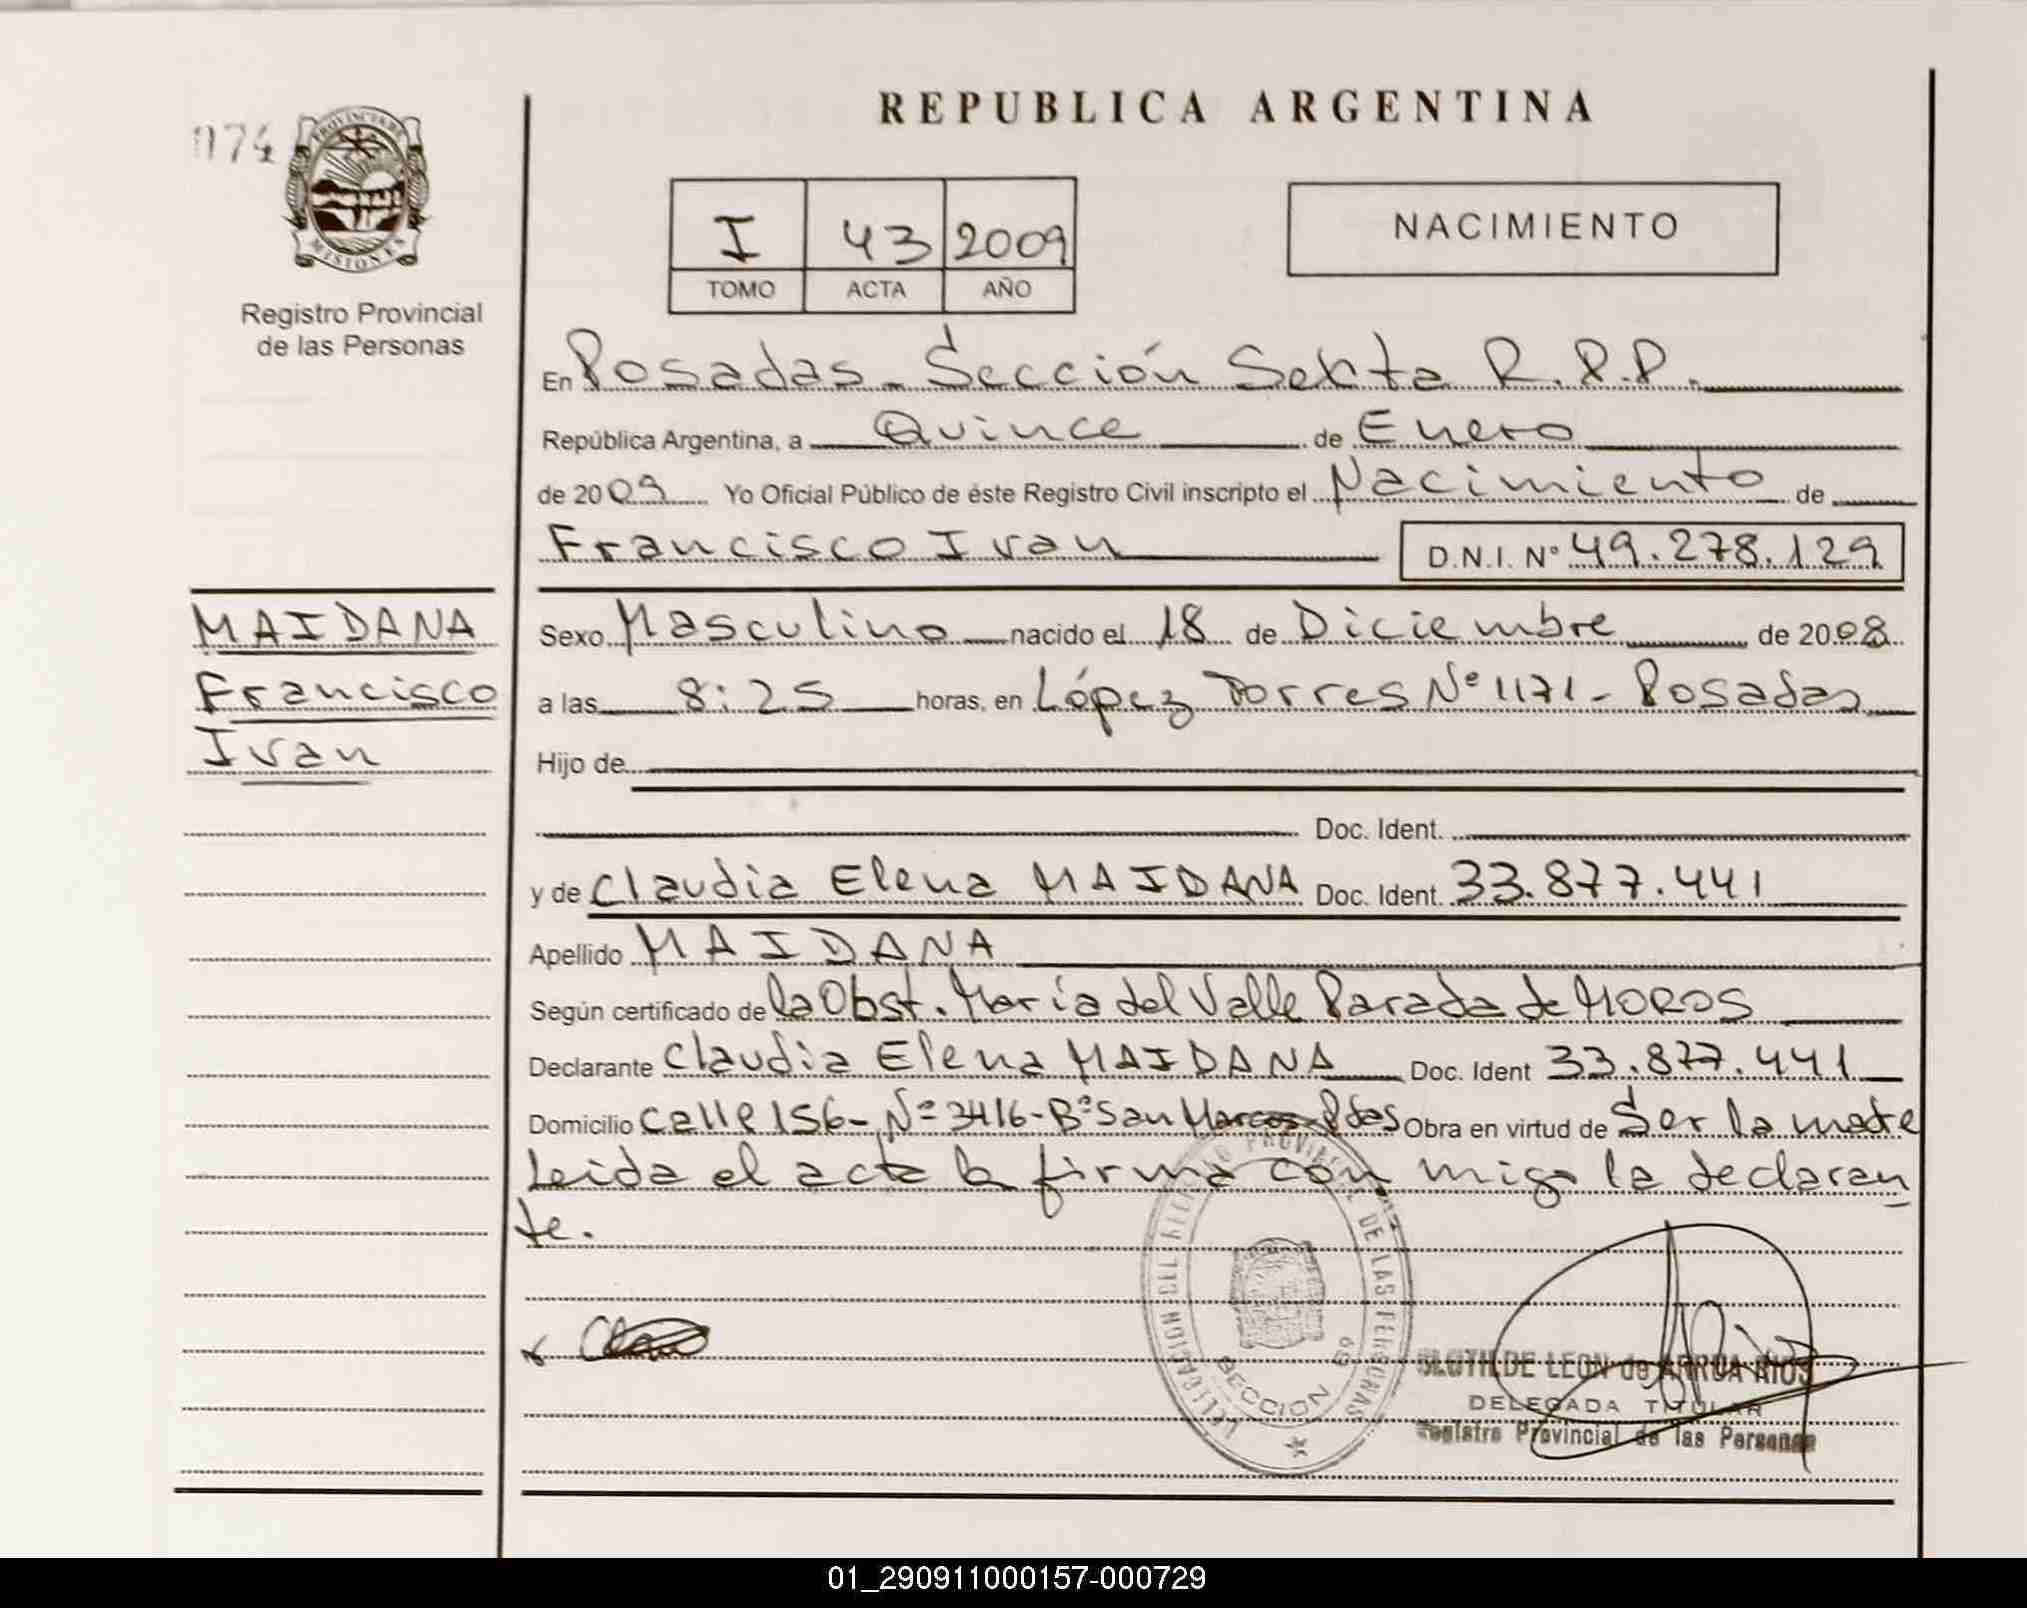 REPUBLICA ARGENTINA
074
PROVINCIA DE
MISIONES
Registro Provincial
de las Personas
I 43 2009
TOMO ACTA AÑO
NACIMIENTO
En Posadas - Sección Sexta R.P.P.
República Argentina, a Quince de Enero
de 2009 Yo Oficial Público de éste Registro Civil inscripto el Nacimiento de
Francisco Ivan D.N.I. Nº 49.278.129
MAIDANA
Francisco
Ivan
Sexo Masculino nacido el 18 de Diciembre de 2008
a las 8:25 horas, en López Torres Nº 1171 - Posadas
Hijo de
Doc. Ident.
y de Claudia Elena MAIDANA Doc. Ident. 33.877.441
Apellido MAIDANA
Según certificado de la Obst. María del Valle Parada de MOROS
Declarante Claudia Elena MAIDANA Doc. Ident 33.877.441
Domicilio Calle 156 - Nº 3416 - Bº San Marcos - Pdas Obra en virtud de Ser la madre
Leida el acta la firma con migo la declaran
te.
DELEGACION DEL REGISTRO PROVINCIAL DE LAS PERSONAS
SECCION 6º
CLOTILDE LEON de ARRUA RIOS
DELEGADA TITULAR
Registro Provincial de las Personas
01_290911000157-000729